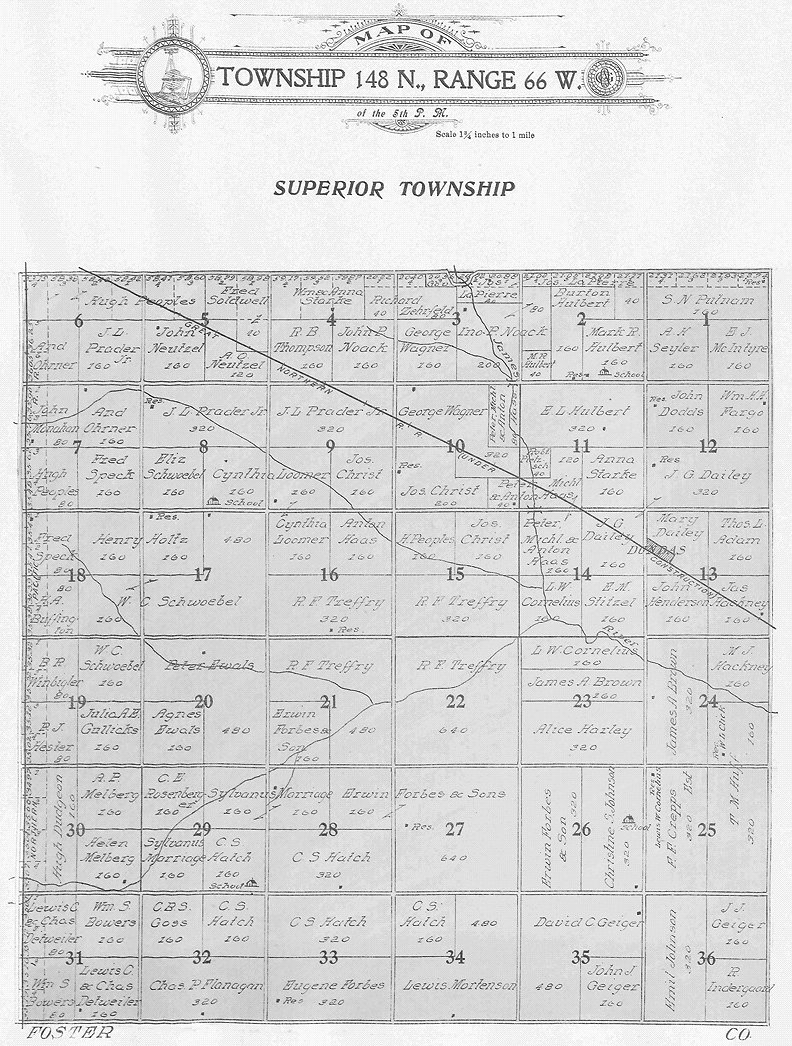 MAP OF
TOWNSHIP 148 N., RANGE 66 W.
of the 5th P. M.
Scale 1¾ inches to 1 mile
SUPERIOR TOWNSHIP
Hugh Peoples
Fred
Soldwell
Wm & Anna
Starke
Richard
40
Zehrfeld
La Pierre
Jos. La Pierre
80
Burton
Hulbert
40
S. N. Putnam
160
Res.
6
5
4
3
2
1
And
Ohrner
J. L.
Prader
Jr.
160
John
Neutzel
160
40
A. O.
Neutzel
120
R. B.
Thompson
160
John P.
Noack
160
George
Wagner
160
Ino. P. Noack
200
James
M. R.
Hulbert
40
160
Mark R.
Hulbert
160
Res.
School
A. H.
Seyler
160
E. J.
McIntyre
160
GREAT
NORTHERN
R. R.
(UNDER
CONSTRUCTION)
John
Monahan
80
And
Ohrner
160
Res.
J. L. Prader Jr.
320
J. L. Prader Jr.
320
George Wagner
Peter Michl
& Anton
Haas
320
E. L. Hulbert
320
Res.
John
Dodds
160
Wm. H. H.
Fargo
160
7
8
9
10
11
12
Hugh
Peoples
80
Fred
Speck
160
Eliz
Schwoebel
160
Cynthia Loomer
160
160
School
Jos.
Christ
160
Res.
Jos. Christ
200
120
Peter Michl
& Anton Haas
40
Anna
Starke
160
Res.
J. G. Dailey
320
Fred
Speck
80
Henry Holtz
160
Res.
480
Cynthia
Loomer
160
Anton
Haas
160
H. Peoples
160
Jos.
Christ
160
Peter
Michl &
Anton
Haas
160
J. G.
Dailey
160
DUNDAS
Mary
Dailey
Thos. L.
Adam
160
18
17
16
15
14
13
80
H. A.
Buffing-
ton
W. C. Schwoebel
160
R. F. Treffry
320
Res.
R. F. Treffry
320
L. W.
Cornelius
160
E. M.
Stitzel
160
John
Henderson
160
Jas
Hackney
160
River
B. R.
80
W. C.
Schwoebel
160
Peter Ewals
R. F. Treffry
R. F. Treffry
L. W. Cornelius
160
James A. Brown
160
James A. Brown
320
M. J.
Hackney
160
19
20
21
22
23
24
P. J.
Hester
80
Julia A. E.
Gullicks
160
Agnes
Ewals
160
480
Erwin
Forbes &
Son
160
480
640
Alice Harley
320
Res.
160
Hugh Dudgeon
160
A. P.
Melberg
160
C. E.
Rosenberg-
er
160
Sylvanus Marriage
160
160
Erwin Forbes & Sons
160
Res.
640
Erwin Forbes
& Son
320
Christine S. Johnson
320
School
Res.
Lewis W. Cornelius
F. F. Crepps
320
T. M. Puff
320
30
29
28
27
26
25
Helen
Melberg
160
Sylvanus
Marriage
160
C. S.
Hatch
160
School
C. S. Hatch
320
Lewis C.
& Chas
Detweiler
80
Wm. S.
Bowers
160
C. B. S.
Goss
160
C. S.
Hatch
160
C. S. Hatch
320
C. S.
Hatch
160
480
David C. Geiger
Emil Johnson
320
J. J.
Geiger
160
31
32
33
34
35
36
Wm. S.
Bowers
80
Lewis C.
& Chas
Detweiler
160
Chas. P. Flanagan
320
Eugene Forbes
Res.
320
Lewis Mortenson
480
John J.
Geiger
160
R.
Indergaard
160
FOSTER
CO.